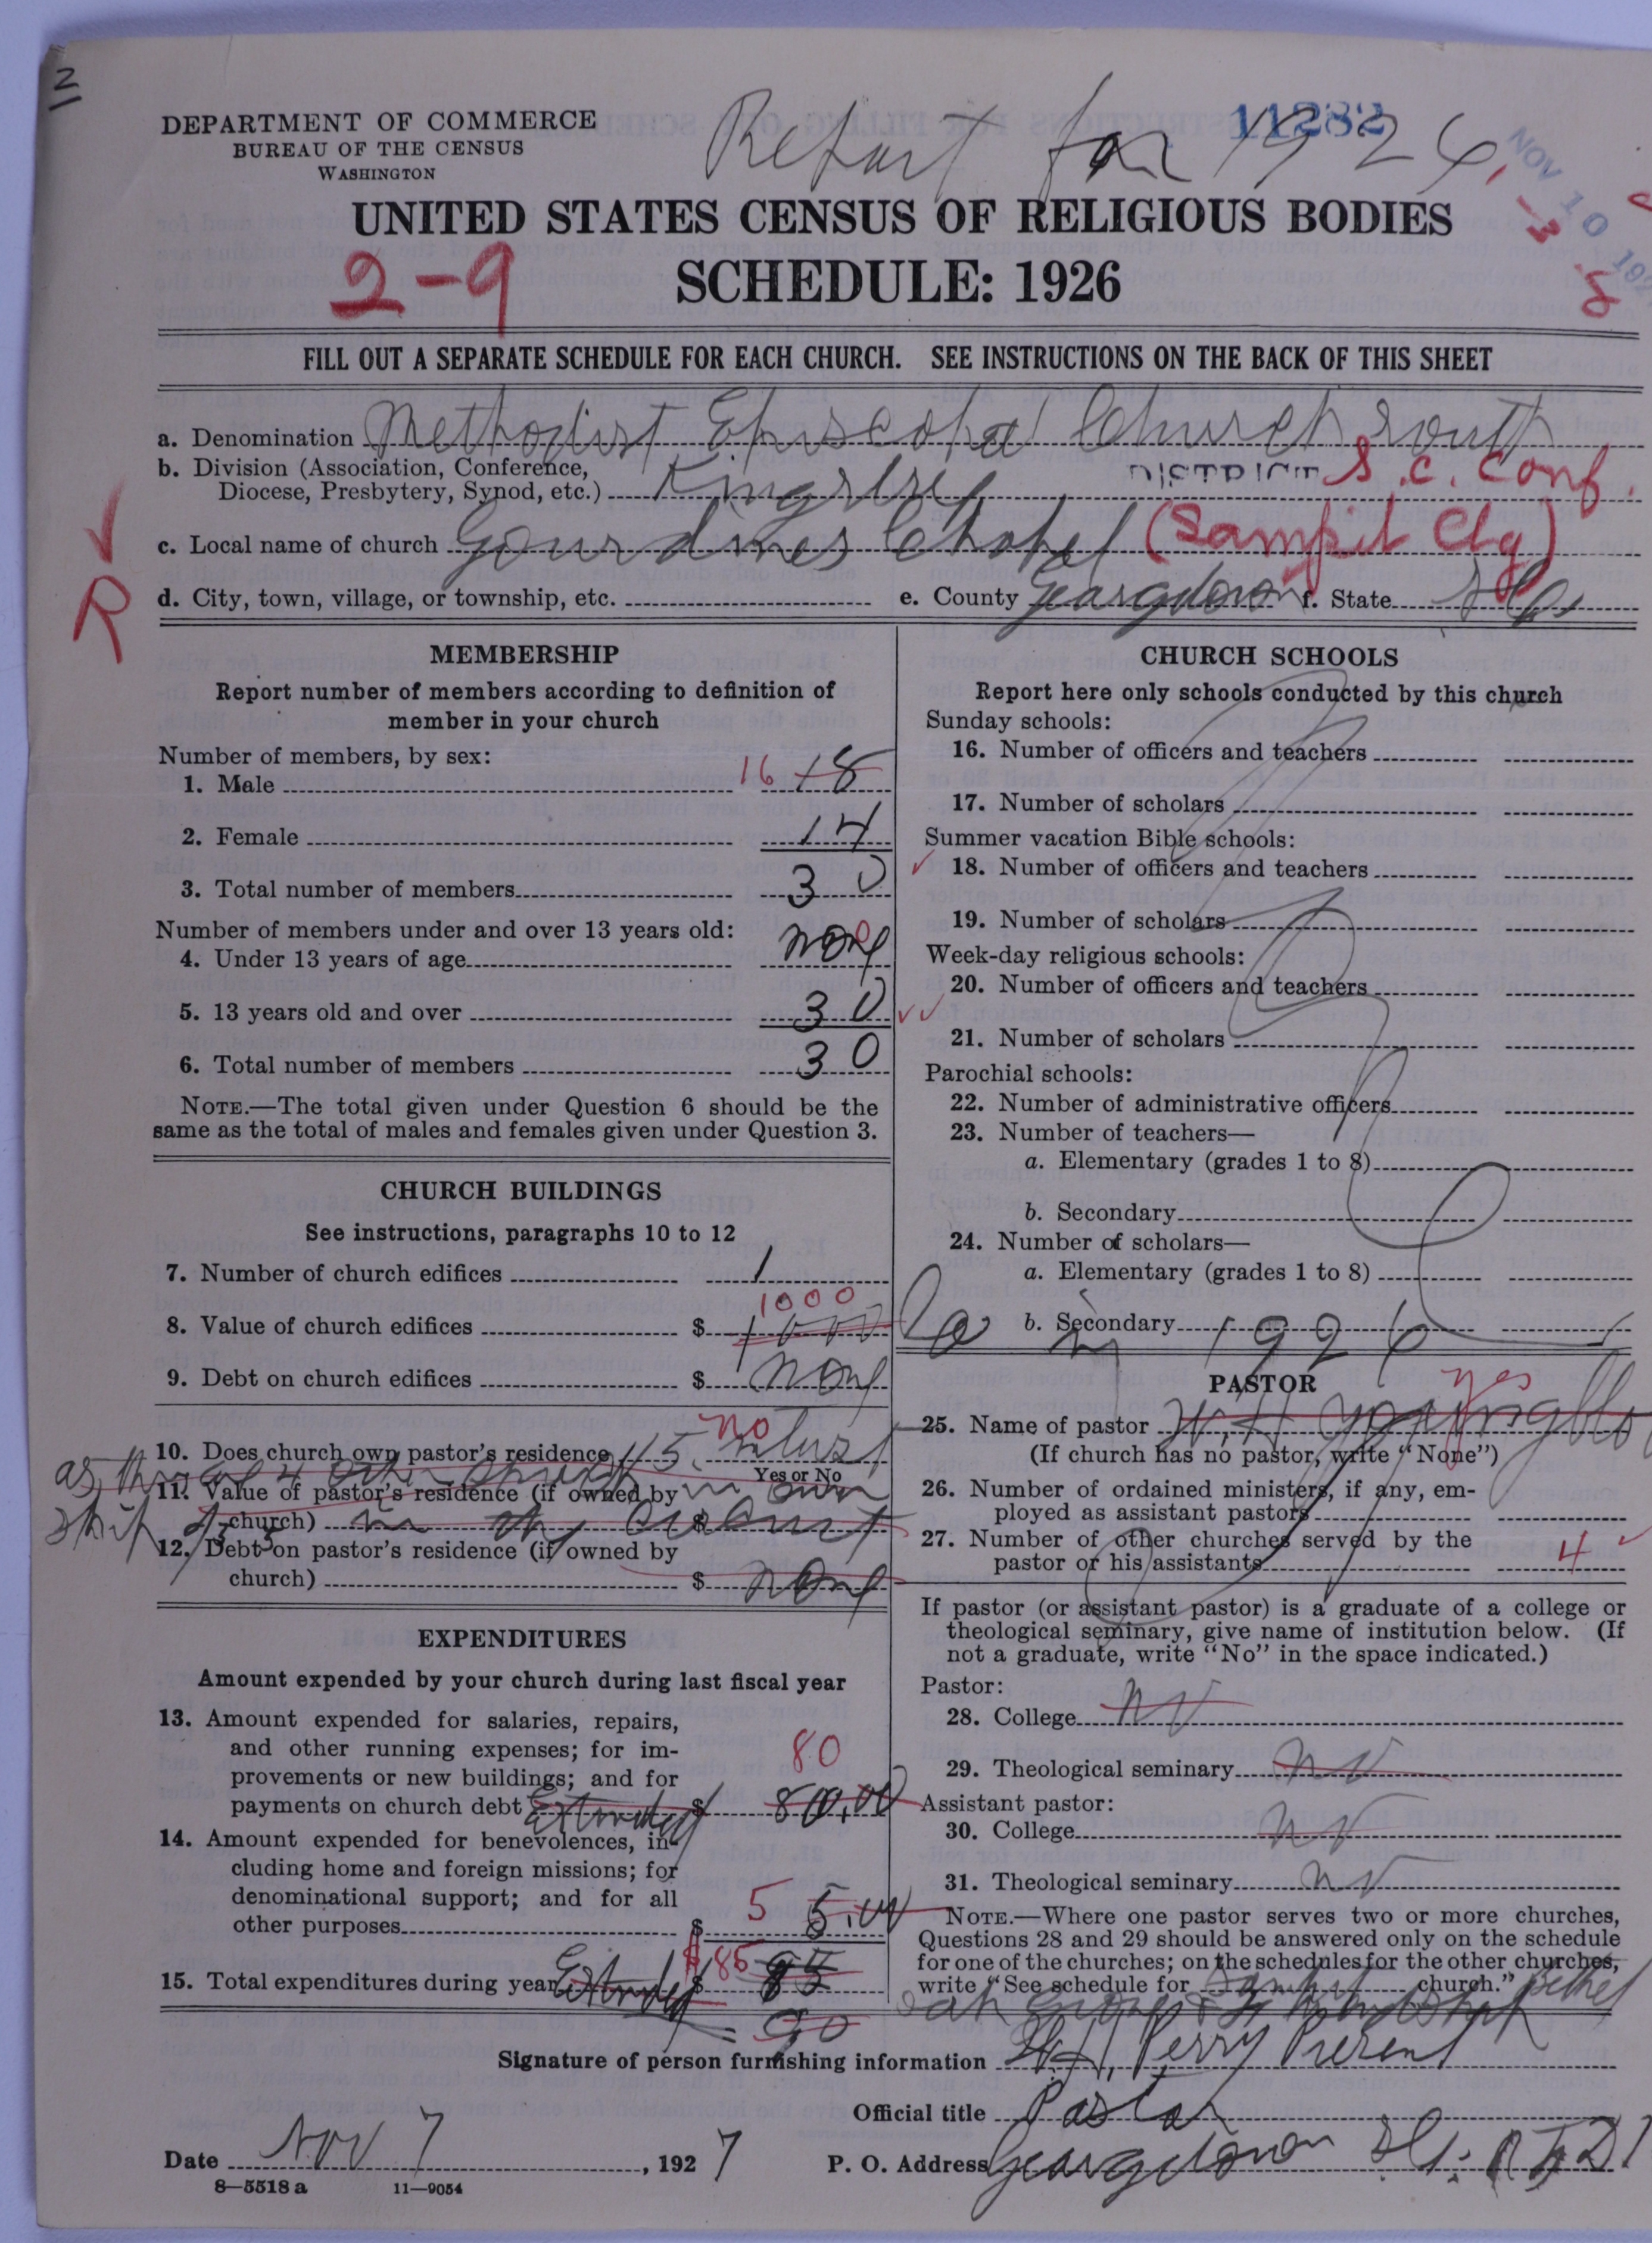 2
DEPARTMENT OF COMMERCE
BUREAU OF THE CENSUS
WASHINGTON
Report for 1926
11282
NOV 10 192
UNITED STATES CENSUS OF RELIGIOUS BODIES
2-9
SCHEDULE: 1926
FILL OUT A SEPARATE SCHEDULE FOR EACH CHURCH. SEE INSTRUCTIONS ON THE BACK OF THIS SHEET
a. Denomination Methodist Episcopal Church South
b. Division (Association, Conference,
Diocese, Presbytery, Synod, etc.) Kingstree DISTRICT S.C. Conf.
c. Local name of church Gourdines Chapel (Sampit Chg)
R
d. City, town, village, or township, etc. e. County Georgetown f. State S C
MEMBERSHIP
Report number of members according to definition of
member in your church
Number of members, by sex:
1. Male 16 18
2. Female 14
3. Total number of members 30
Number of members under and over 13 years old:
4. Under 13 years of age none 0
5. 13 years old and over 30
6. Total number of members 30
NOTE.—The total given under Question 6 should be the
same as the total of males and females given under Question 3.
CHURCH BUILDINGS
See instructions, paragraphs 10 to 12
7. Number of church edifices 1
1000
8. Value of church edifices $ 1000
9. Debt on church edifices $ none
no
10. Does church own pastor's residence 1/5
Yes or No
as other
11. Value of pastor's residence (if owned by
church) $ in the
12. Debt on pastor's residence (if owned by
church) $ none
EXPENDITURES
Amount expended by your church during last fiscal year
13. Amount expended for salaries, repairs,
and other running expenses; for im-
provements or new buildings; and for 80
payments on church debt Estimated $ 80.00
14. Amount expended for benevolences, in-
cluding home and foreign missions; for
denominational support; and for all
other purposes $ 5 5.00
15. Total expenditures during year Estimated $85 85
90
CHURCH SCHOOLS
Report here only schools conducted by this church
Sunday schools:
16. Number of officers and teachers
17. Number of scholars
Summer vacation Bible schools:
18. Number of officers and teachers
19. Number of scholars
Week-day religious schools:
20. Number of officers and teachers
21. Number of scholars
Parochial schools:
22. Number of administrative officers
23. Number of teachers—
a. Elementary (grades 1 to 8)
b. Secondary
24. Number of scholars—
a. Elementary (grades 1 to 8)
b. Secondary
in 1926
PASTOR
yes
25. Name of pastor W. H
(If church has no pastor, write "None")
26. Number of ordained ministers, if any, em-
ployed as assistant pastors
27. Number of other churches served by the
pastor or his assistants 4
If pastor (or assistant pastor) is a graduate of a college or
theological seminary, give name of institution below. (If
not a graduate, write "No" in the space indicated.)
Pastor:
28. College no
29. Theological seminary no
Assistant pastor:
30. College no
31. Theological seminary no
NOTE.—Where one pastor serves two or more churches,
Questions 28 and 29 should be answered only on the schedule
for one of the churches; on the schedules for the other churches,
write "See schedule for Sampit church." Bethel
Oak Grove &
Signature of person furnishing information Perry Present
Official title Pastor
Date Nov 7, 1927
P. O. Address Georgetown S C. RFD 1
8—5518 a 11—9054